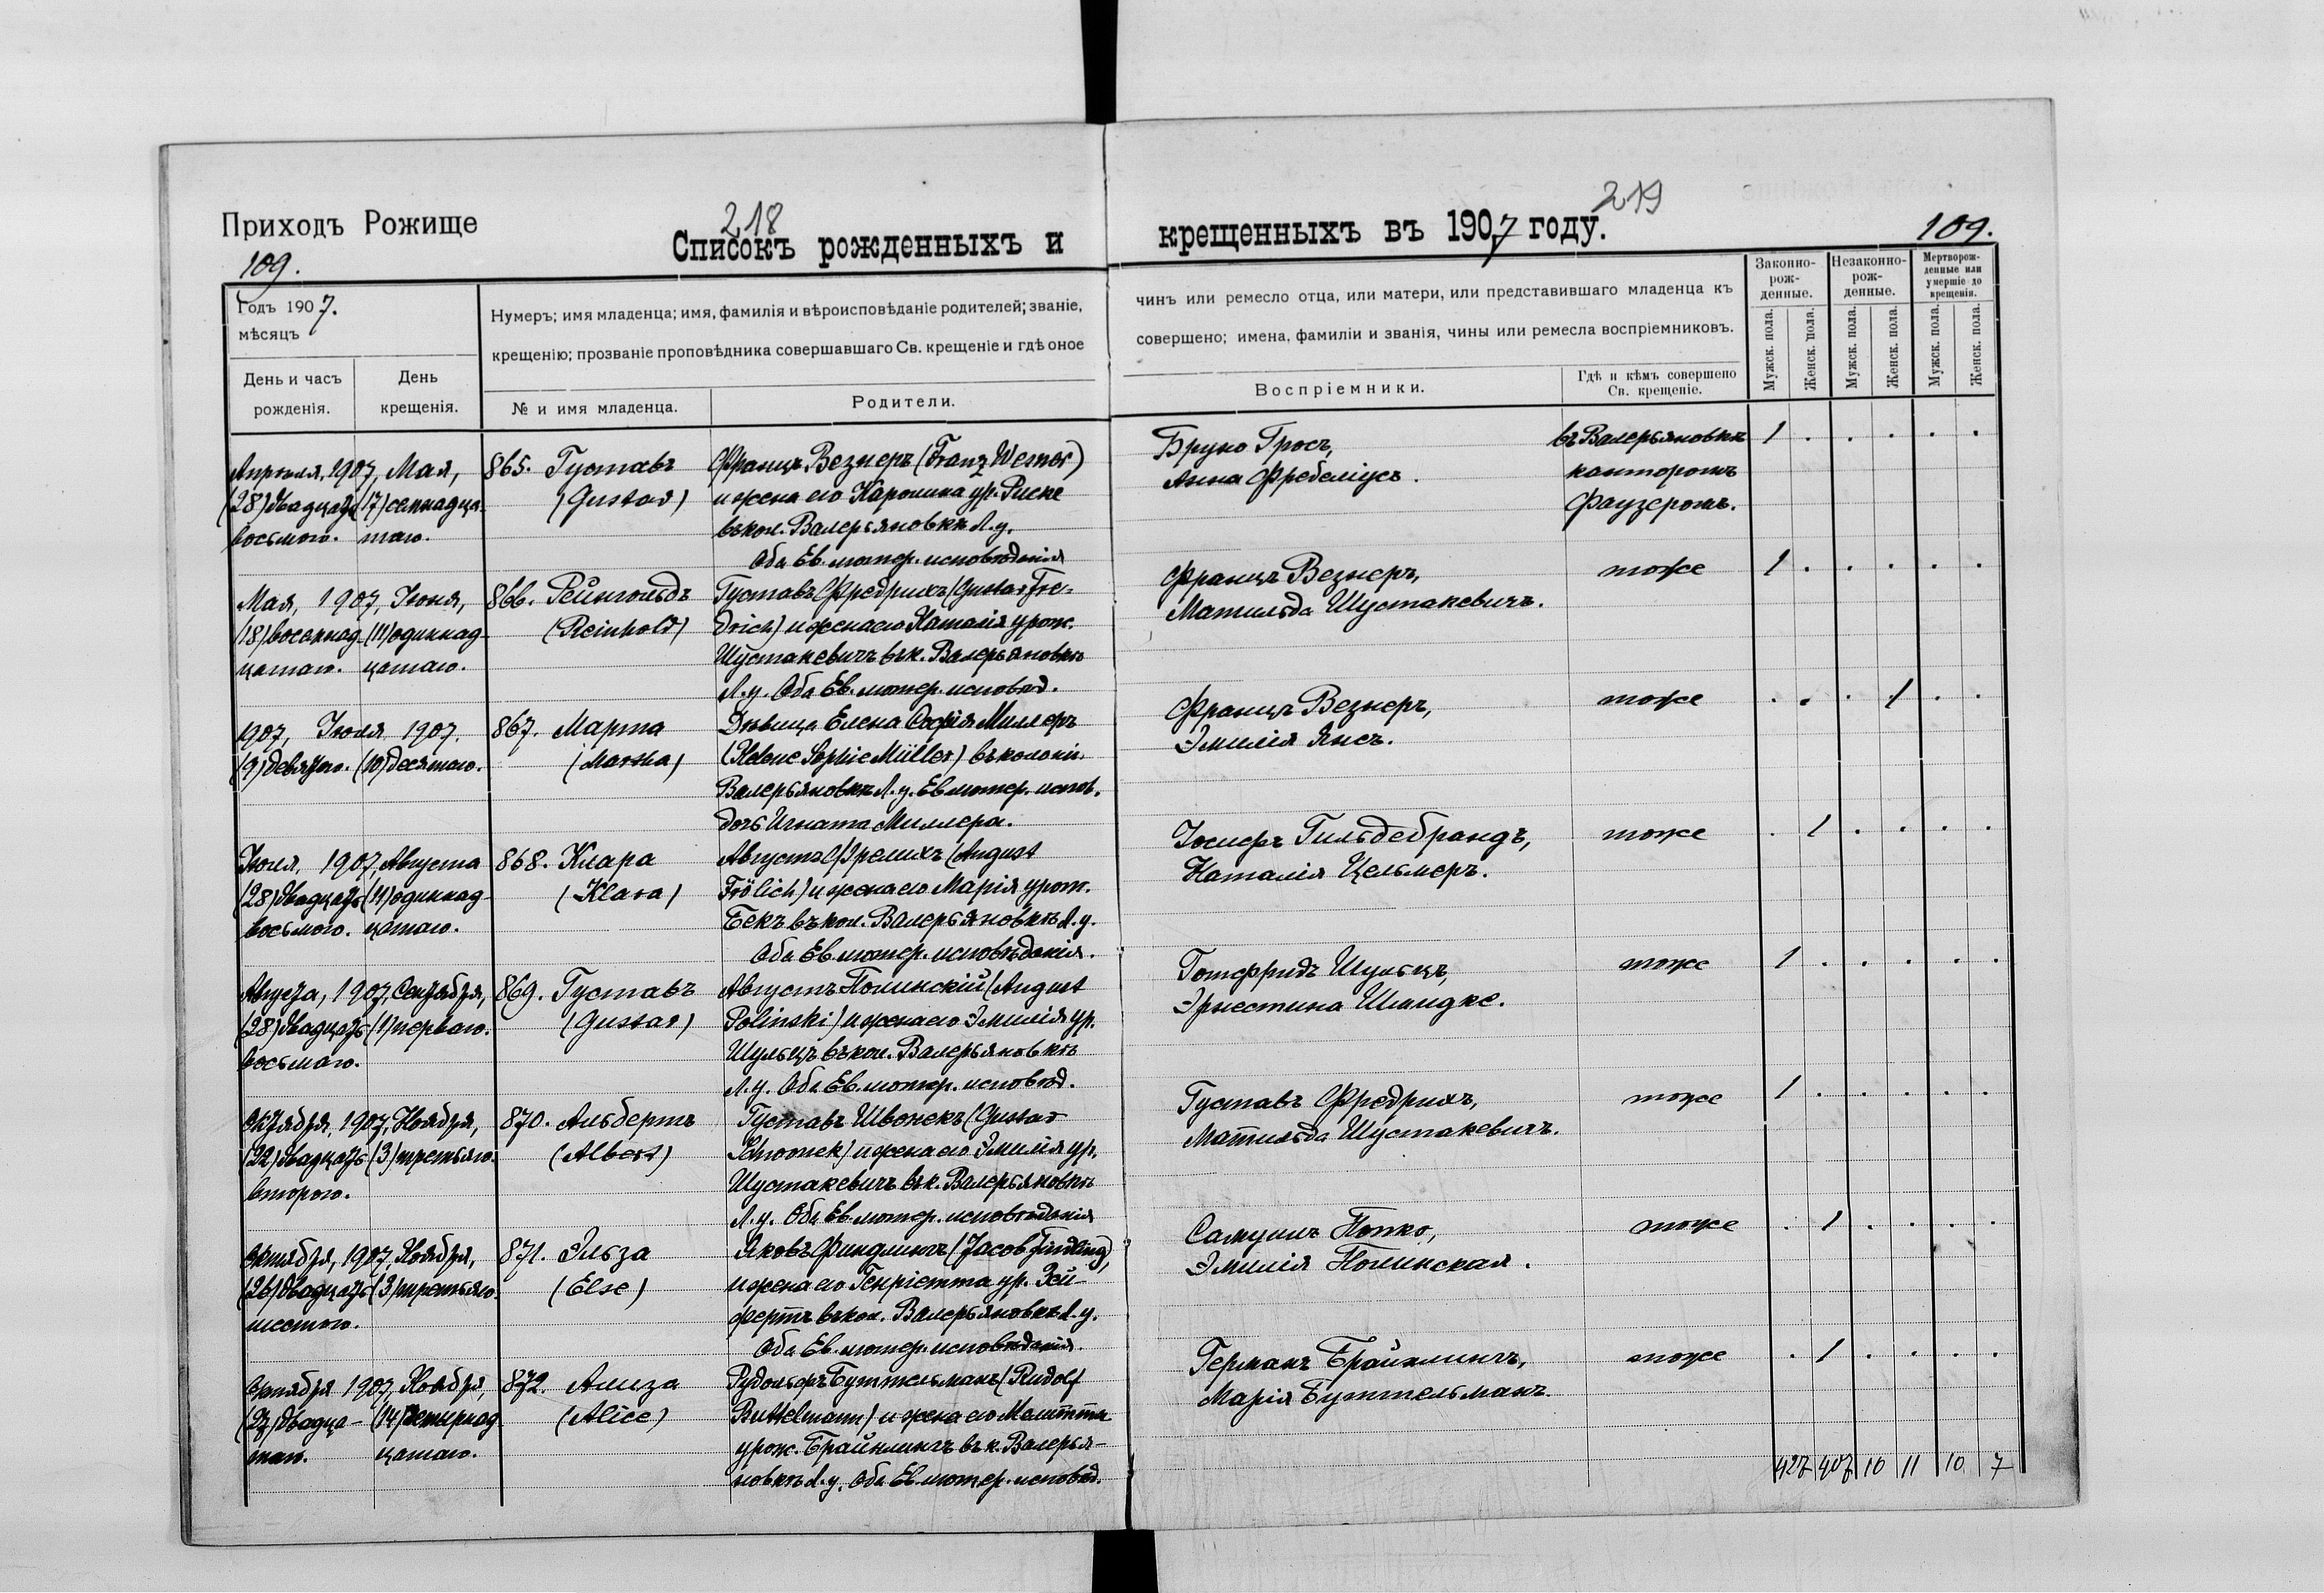 Приходъ Рожище
218
Списокъ рожденныхъ и
109.
Годъ 1907.
мѣсяцъ
День и часъ
рожденія.
День
крещенія.
Нумеръ; имя младенца; имя, фамилія и вѣроисповѣданіе родителей; званіе,
крещенію; прозваніе проповѣдника совершавшаго Св. крещеніе и гдѣ оное
№ и имя младенца.
Родители.
Апрѣля, 1907, Мая, 865. Густавъ Францъ Везнеръ (Franz Wesner)
(28) двадцать (17) семнадца- (Gustav) и жена его Каролина ур. Риске
восьмого. таго. въ кол. Валерьяновкѣ Л. у.
Оба Ев. лютер. исповѣданія
Мая, 1907, Іюня, 866. Рейнгольдъ Густавъ Фредрихъ (Gustav Fre-
(18) восемнад- (11) одиннад- (Reinhold) drich) и жена его Наталія урож.
цатаго. цатаго. Шустакевичъ въ к. Валерьяновкѣ
Л. у. Оба Ев. лютер. исповѣд.
1907, Іюля 1907. 867. Марта Дѣвица Елена Софія Миллеръ
(9) девятого. (10) десятаго. (Martha) (Helene Sophie Müller) въ колоніи
Валерьяновкѣ Л. у. Ев. лютер. испов.
дочь Игната Миллера.
Іюля, 1907, Августа 868. Клара Августъ Фрелихъ (August
(28) двадцать (11) одиннад- (Klara) Frölich) и жена его Марія урож.
восьмого. цатаго. Бекъ въ кол. Валерьяновкѣ Л. у.
Оба Ев. лютер. исповѣданія.
Августа, 1907, Сентября, 869. Густавъ Августъ Полинскій (August
(28) двадцать (1) перваго. (Gustav) Polinski) и жена его Эмилія ур.
восьмаго. Шульцъ въ кол. Валерьяновкѣ
Л. у. Оба Ев. лютер. исповѣд.
Октября, 1907, Ноября, 870. Альбертъ Густавъ Швонекъ (Gustav
(22) двадцать (3) третьяго. (Albert) Schwonek) и жена его Эмилія ур.
второго. Шустакевичъ въ к. Валерьяновкѣ
Л. у. Оба Ев. лютер. исповѣданія
Октября, 1907, Ноября, 871. Эльза Яковъ Финдлингъ (Jacob Findling)
(26) двадцать (3) третьяго. (Else) и жена его Генріетта ур. Зей-
шестого. фертъ въ кол. Валерьяновкѣ Л. у.
Оба Ев. лютер. исповѣданія.
Октября 1907, Ноября, 872. Ализа Рудольфъ Буттельманъ (Rudolf
двадца- (14) четырнад- (Alice) Buttelmann) и жена его
таго. цатаго. урож. Брайнлингъ въ к. Валерья-
новкѣ Л. у. Оба Ев. лютер. исповѣд.
219
крещенныхъ въ 1907 году.
109.
чинъ или ремесло отца, или матери, или представившаго младенца къ
совершено; имена, фамиліи и званія, чины или ремесла воспріемниковъ.
Воспріемники.
Гдѣ и кѣмъ совершено
Св. крещеніе.
Законно-
рож-
денные.
Незаконно-
рож-
денные.
Мертворож-
денные или
умершіе до
крещенія.
Мужск. пола. Женск. пола. Мужск. пола. Женск. пола. Мужск. пола. Женск. пола.
Бруно Гросъ, въ Валерьяновкѣ 1 . . . . .
Анна Фребеліусъ. канторомъ
Фаузеромъ.
Францъ Везнеръ, тоже 1 . . . . .
Матильда Шустакевичъ.
Францъ Везнеръ, тоже . . . 1 . .
Эмилія Янсъ.
Іосифъ Гильдебрандъ, тоже . 1 . . . .
Наталія Цельмеръ.
Готфридъ Шульцъ, тоже 1 . . . . .
Эрнестина Шмидке.
Густавъ Фредрихъ, тоже 1 . . . . .
Матильда Шустакевичъ.
Самуилъ Попко, тоже . 1 . . . .
Эмилія Полинская.
Германъ Брайнлингъ, тоже . 1 . . . .
Марія Буттельманъ
427 407 10 11 10 7